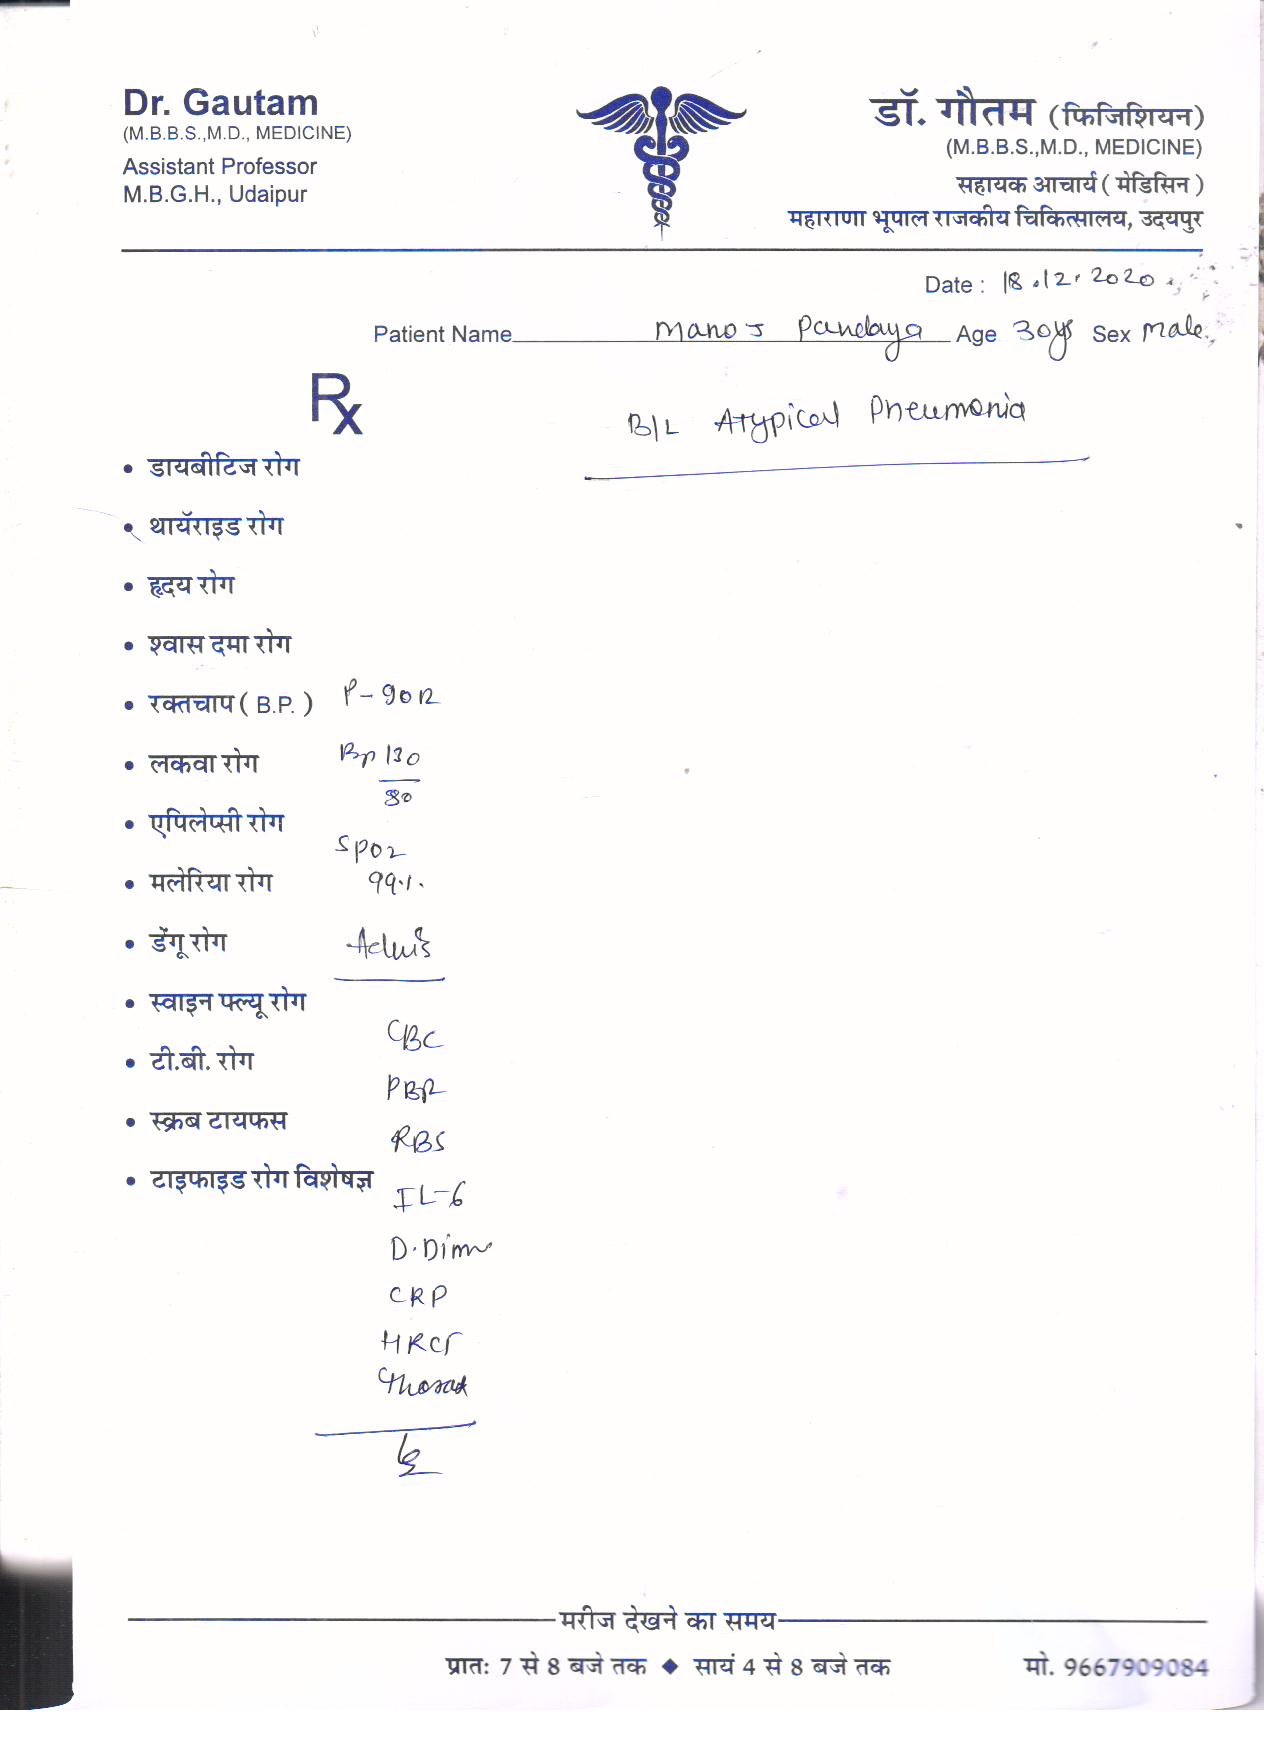 Dr. Gautam
(M.B.B.S.,M.D., MEDICINE)
Assistant Professor
M.B.G.H., Udaipur
डॉ. गौतम (फिजिशियन)
(M.B.B.S.,M.D., MEDICINE)
सहायक आचार्य ( मेडिसिन )
महाराणा भूपाल राजकीय चिकित्सालय, उदयपुर
Date : 18.12.2020
Patient Name Manoj Pandaya Age 30ys Sex Male
Rx
B/L Atypical Pneumonia
• डायबीटिज रोग
• थायॅराइड रोग
• हृदय रोग
• श्वास दमा रोग
• रक्तचाप ( B.P. ) P-90
• लकवा रोग
Bp 130
80
• एपिलेप्सी रोग
SPO2
• मलेरिया रोग 99%
• डेंगू रोग Advis
• स्वाइन फ्ल्यू रोग
CBC
• टी.बी. रोग
PBF
• स्क्रब टायफस
RBS
• टाइफाइड रोग विशेषज्ञ
IL-6
D.Dimer
CRP
HRCT
Thorax
मरीज देखने का समय
प्रातः 7 से 8 बजे तक ♦ सायं 4 से 8 बजे तक
मो. 9667909084